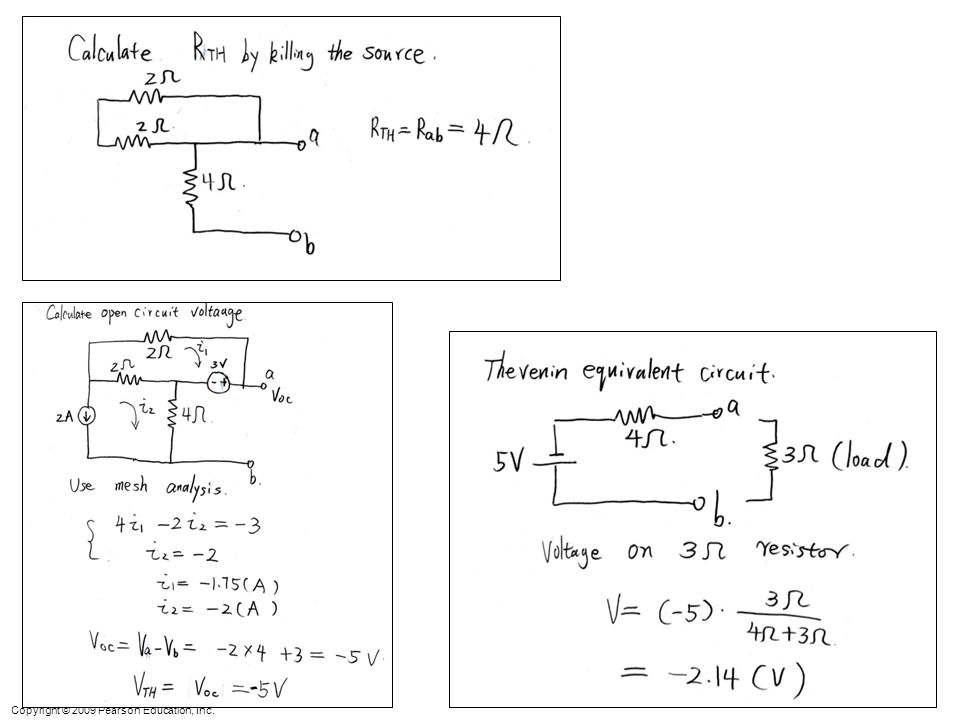 Calculate RTH by killing the source.
2Ω
2Ω.
a
RTH = Rab = 4Ω.
4Ω.
b
Calculate open circuit voltaage
2Ω
i1
2Ω
3V
- +
a
Voc
2A
i2
4Ω.
b.
Use mesh analysis.
{ 4i1 - 2i2 = -3
i2 = -2
i1 = -1.75(A)
i2 = -2(A)
Voc = Va - Vb = -2×4 +3 = -5V.
VTH = Voc = -5V
Thevenin equivalent circuit.
a
4Ω.
5V
3Ω (load).
b.
Voltage on 3Ω resistor.
V = (-5) · 3Ω / 4Ω+3Ω
= -2.14 (V)
Copyright © 2009 Pearson Education, Inc.